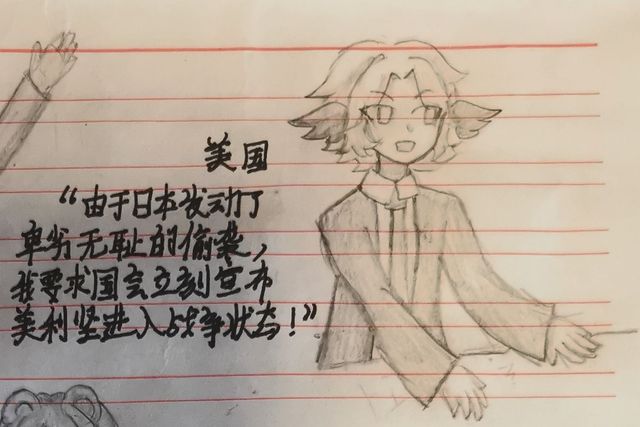 美国
“由于日本发动了
卑劣无耻的偷袭，
我要求国会立刻宣布
美利坚进入战争状态！”